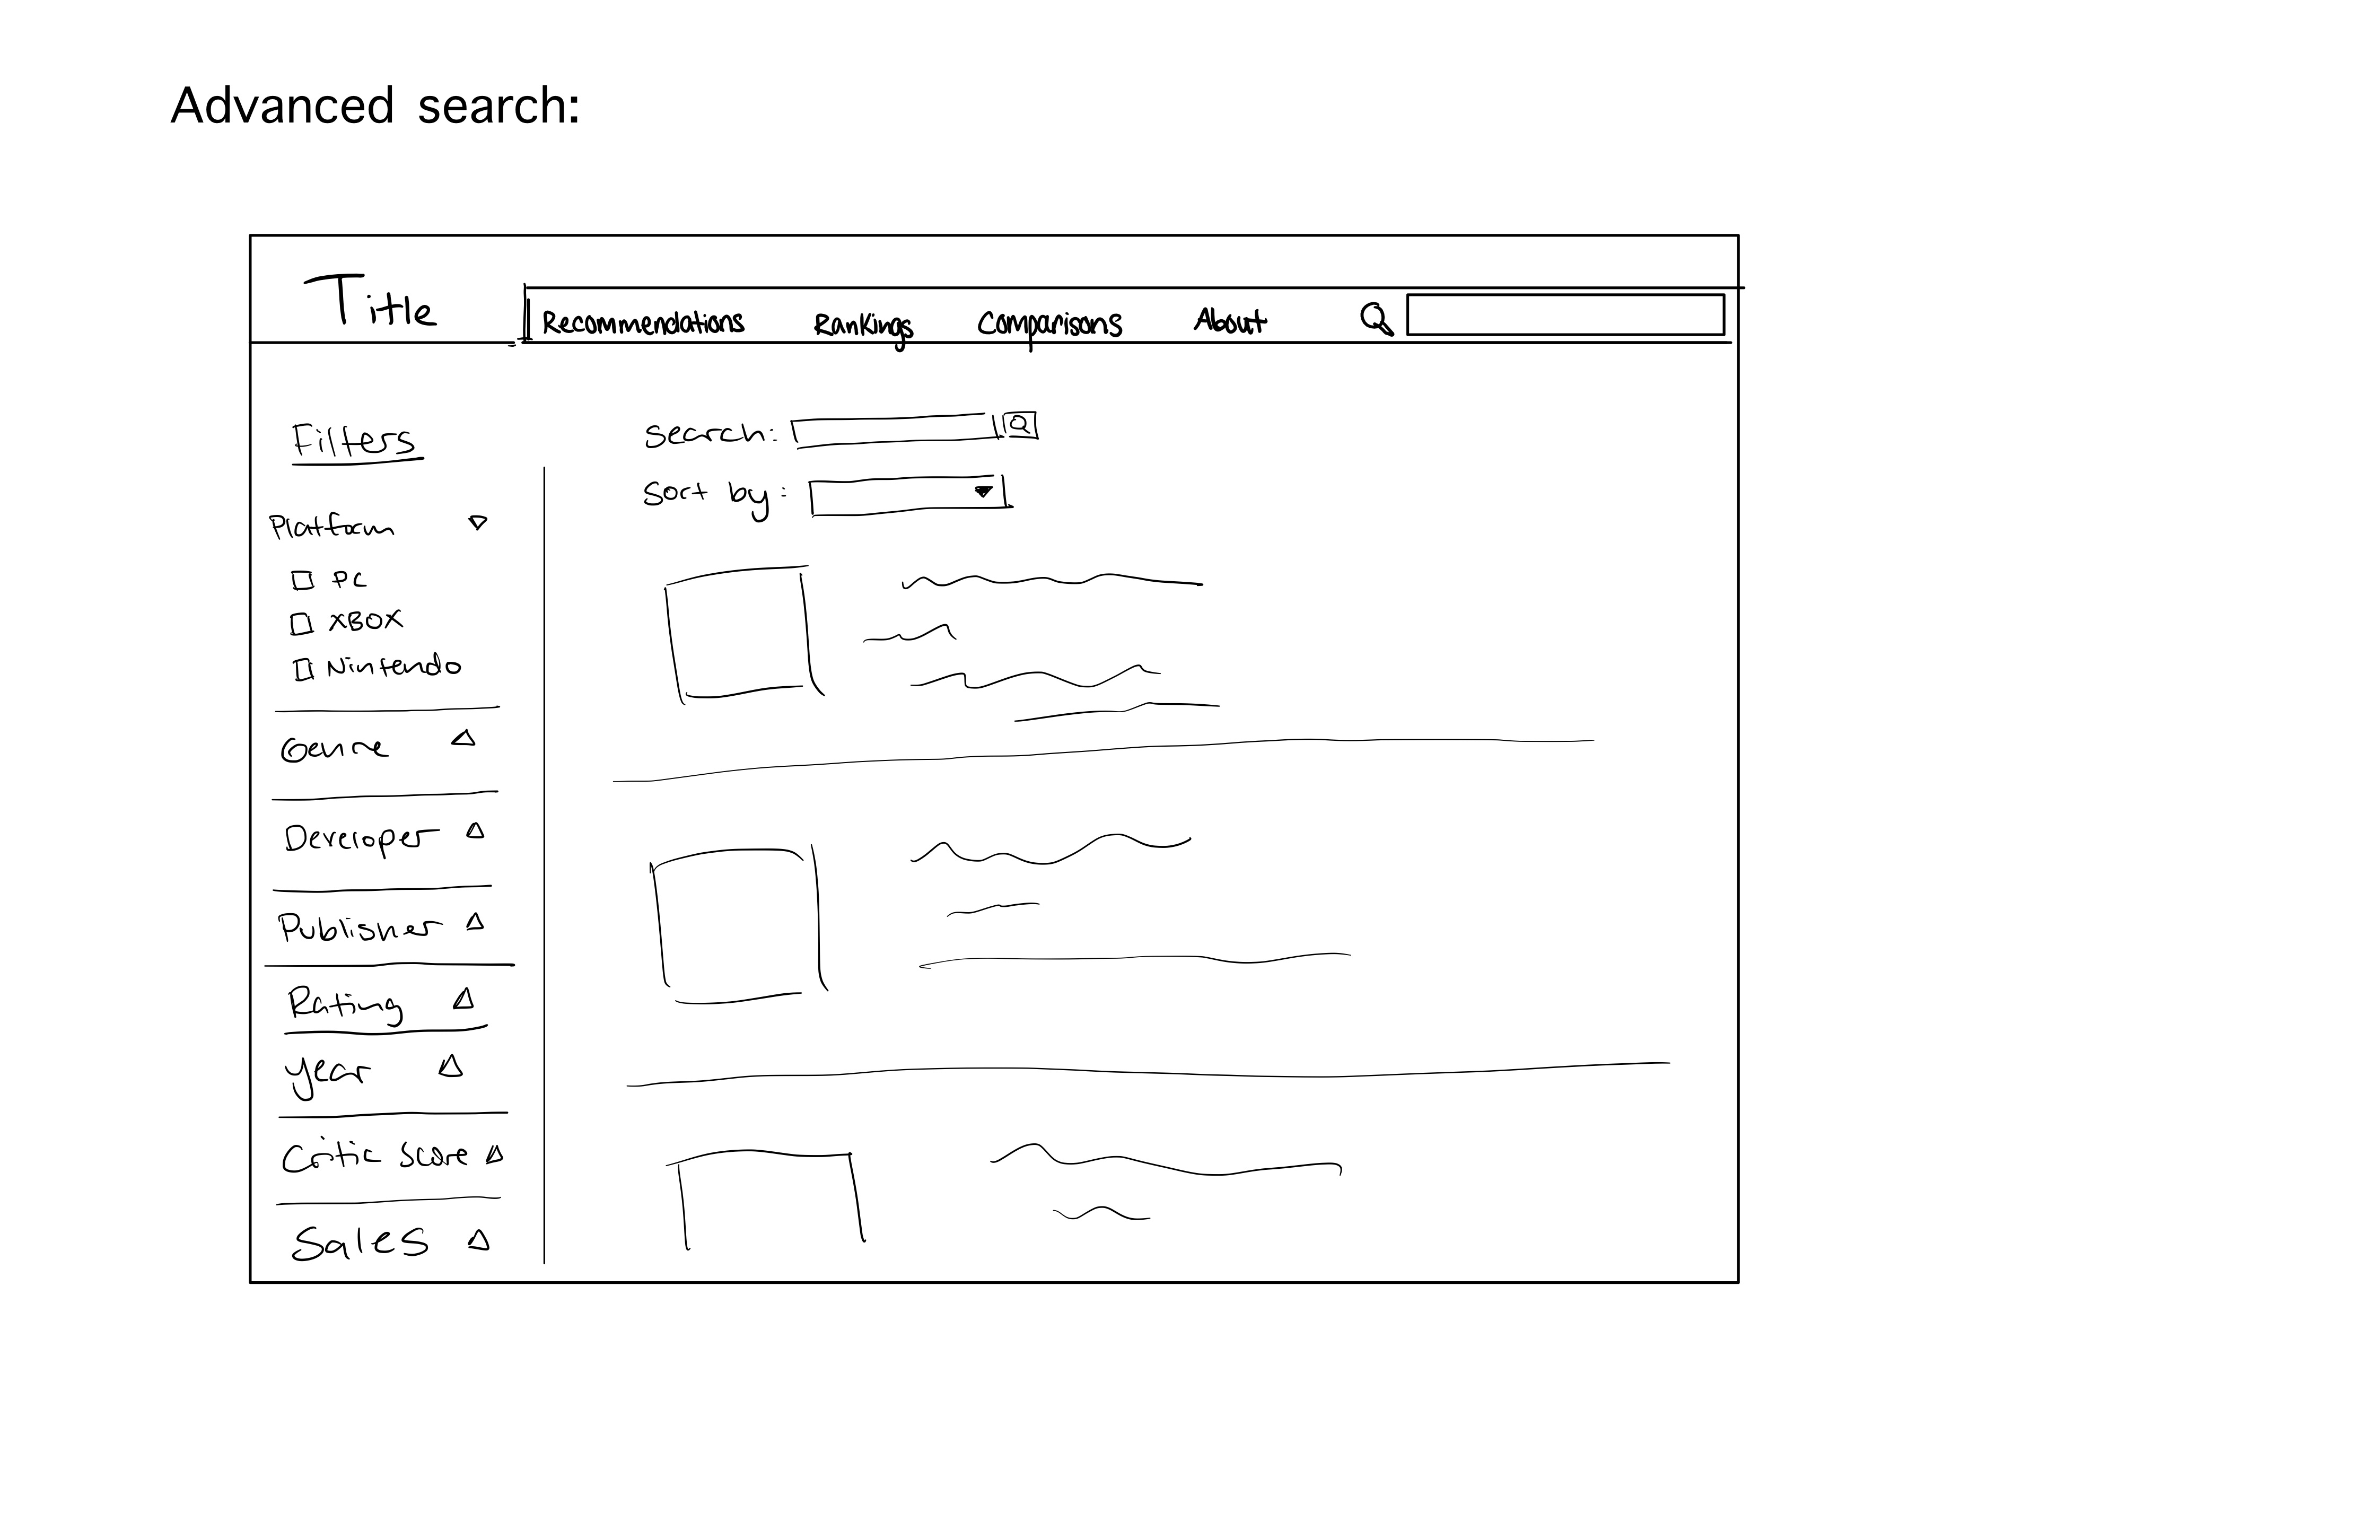 Advanced search:
Title
Recommendations Rankings Comparisons About
Filters
Platform
PC
XBOX
Nintendo
Genre
Developer
Publisher
Rating
Year
Critic Score
Sales
Search:
Sort by: